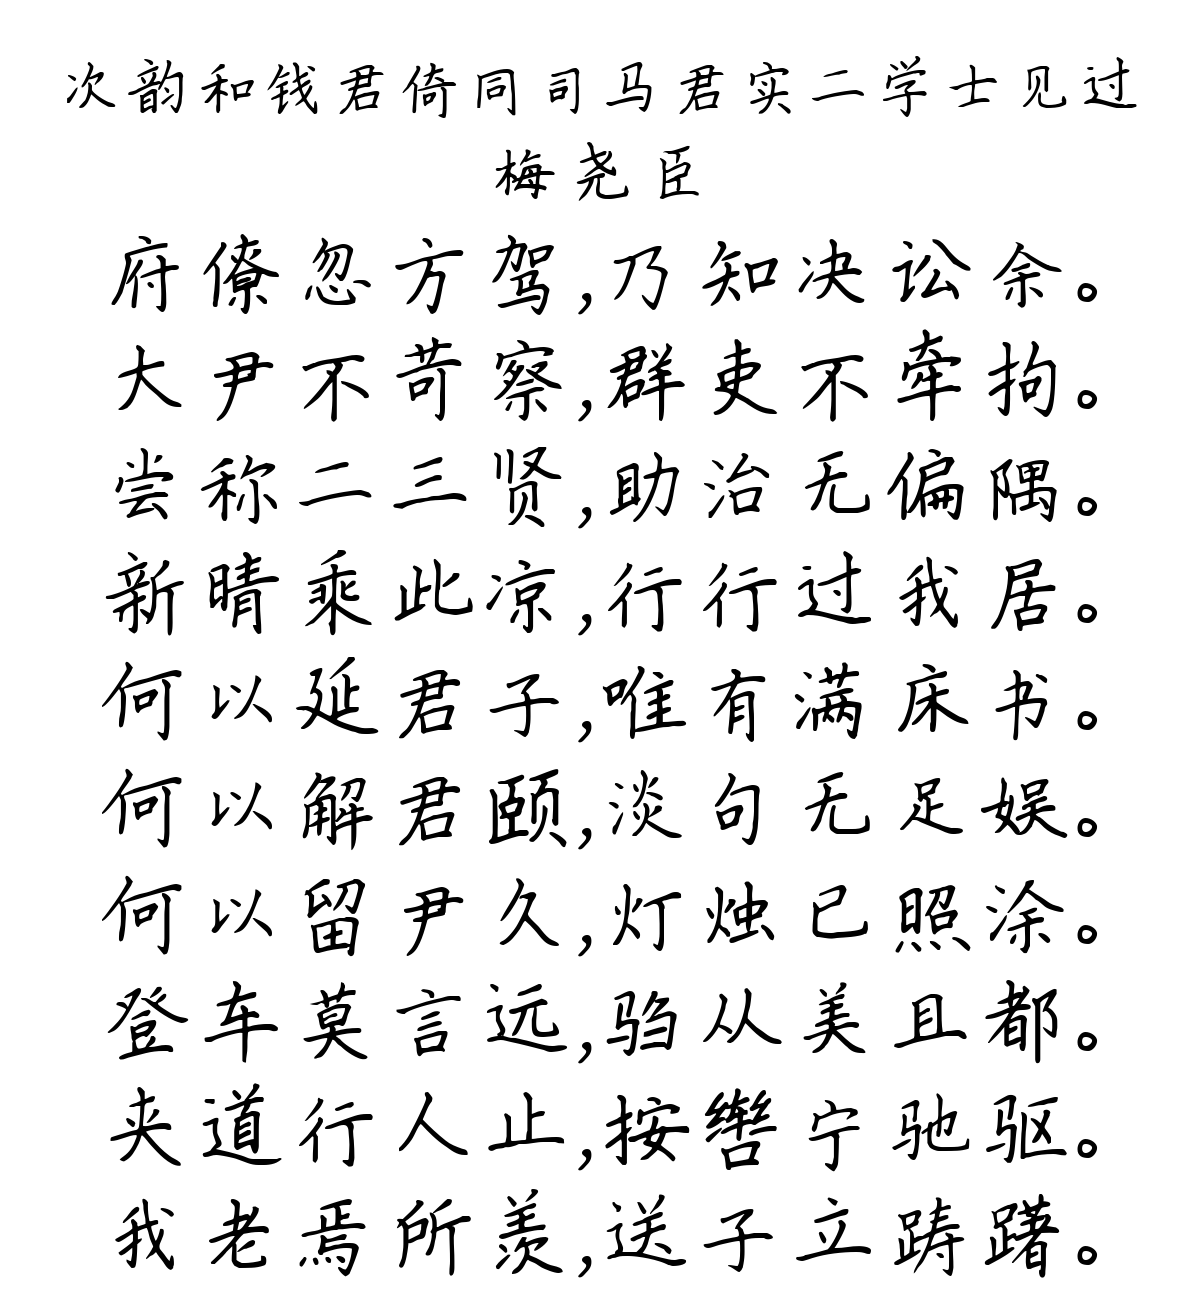 次韵和钱君倚同司马君实二学士见过
梅尧臣
府僚忽方驾,乃知决讼余。
大尹不苛察,群吏不牵拘。
尝称二三贤,助治无偏隅。
新晴乘此凉,行行过我居。
何以延君子,唯有满床书。
何以解君颐,淡句无足娱。
何以留尹久,灯烛已照涂。
登车莫言远,驺从美且都。
夹道行人止,按辔宁驰驱。
我老焉所羡,送子立踌躇。